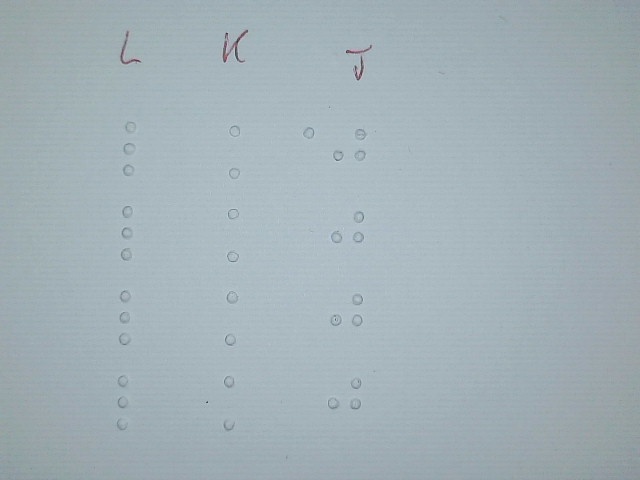 L K J
⠇ ⠅ ⠈⠚
⠇ ⠅ ⠚
⠇ ⠅ ⠚
⠇ ⠅ ⠚